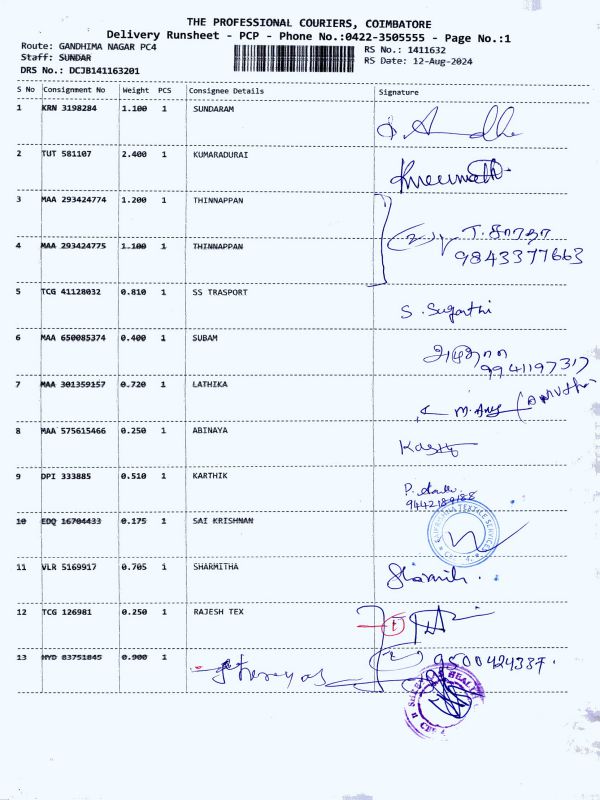 THE PROFESSIONAL COURIERS, COIMBATORE
Delivery Runsheet - PCP - Phone No.:0422-3505555 - Page No.:1
Route: GANDHIMA NAGAR PC4
RS No.: 1411632
Staff: SUNDAR
RS Date: 12-Aug-2024
DRS No.: DCJB141163201
S No Consignment No Weight PCS Consignee Details Signature
1 KRN 3198284 1.100 1 SUNDARAM
2 TUT 581107 2.400 1 KUMARADURAI
3 MAA 293424774 1.200 1 THINNAPPAN
4 MAA 293424775 1.100 1 THINNAPPAN
9843377663
5 TCG 41128032 0.810 1 SS TRASPORT S. Suganthi
6 MAA 650085374 0.400 1 SUBAM
9941197317
7 MAA 301359157 0.720 1 LATHIKA
8 MAA 575615466 0.250 1 ABINAYA
9 DPI 333885 0.510 1 KARTHIK
10 EDQ 16704433 0.175 1 SAI KRISHNAN
11 VLR 5169917 0.705 1 SHARMITHA
12 TCG 126981 0.250 1 RAJESH TEX
13 HYD 83751845 0.900 1 9500424387.